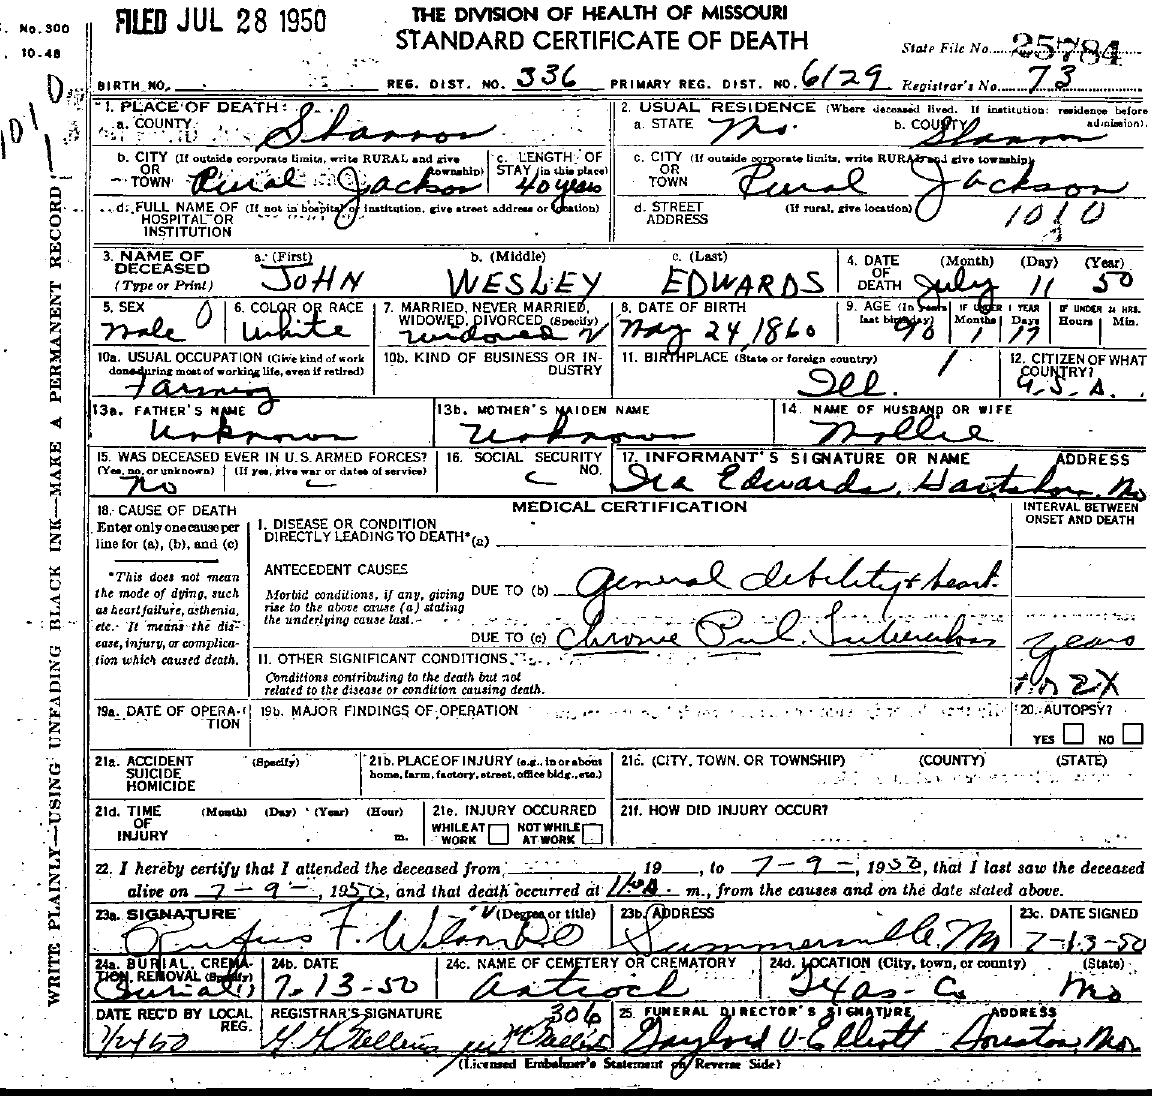 FILED JUL 28 1950
THE DIVISION OF HEALTH OF MISSOURI
STANDARD CERTIFICATE OF DEATH
No. 300
10-48
State File No. 25784
BIRTH NO. REG. DIST. NO. 336 PRIMARY REG. DIST. NO. 6129 Registrar's No. 73
WRITE PLAINLY—USING UNFADING BLACK INK—MAKE A PERMANENT RECORD
1. PLACE OF DEATH:
a. COUNTY Shannon
2. USUAL RESIDENCE (Where deceased lived. If institution: residence before admission).
a. STATE Mo. b. COUNTY Shannon
b. CITY (If outside corporate limits, write RURAL and give township)
OR
TOWN Rural Jackson
c. LENGTH OF STAY (in this place) 40 years
c. CITY (If outside corporate limits, write RURAL and give township)
OR
TOWN Rural Jackson
d. FULL NAME OF (If not in hospital or institution, give street address or location)
HOSPITAL OR
INSTITUTION
d. STREET ADDRESS (If rural, give location) 1010
3. NAME OF DECEASED (Type or Print)
a. (First) JOHN b. (Middle) WESLEY c. (Last) EDWARDS
4. DATE OF DEATH (Month) (Day) (Year) July 11 50
5. SEX Male
6. COLOR OR RACE White
7. MARRIED, NEVER MARRIED, WIDOWED, DIVORCED (Specify) Widowed
8. DATE OF BIRTH May 24, 1860
9. AGE (In years last birthday) 90 IF UNDER 1 YEAR Months 1 Days 17 IF UNDER 24 HRS. Hours Min.
10a. USUAL OCCUPATION (Give kind of work done during most of working life, even if retired) Farming
10b. KIND OF BUSINESS OR INDUSTRY
11. BIRTHPLACE (State or foreign country) Ill.
12. CITIZEN OF WHAT COUNTRY? U.S.A.
13a. FATHER'S NAME Unknown
13b. MOTHER'S MAIDEN NAME Unknown
14. NAME OF HUSBAND OR WIFE Mollie
15. WAS DECEASED EVER IN U.S. ARMED FORCES?
(Yes, no, or unknown) (If yes, give war or dates of service)
No
16. SOCIAL SECURITY NO.
17. INFORMANT'S SIGNATURE OR NAME ADDRESS
Ira Edwards, Hartshorn, Mo
18. CAUSE OF DEATH
Enter only one cause per line for (a), (b), and (c)
MEDICAL CERTIFICATION
INTERVAL BETWEEN ONSET AND DEATH
I. DISEASE OR CONDITION
DIRECTLY LEADING TO DEATH* (a)
*This does not mean the mode of dying, such as heart failure, asthenia, etc. It means the disease, injury, or complication which caused death.
ANTECEDENT CAUSES
Morbid conditions, if any, giving rise to the above cause (a) stating the underlying cause last.
DUE TO (b) General debility & heart.
DUE TO (c) Chronic Pul. Tuberculosis years
II. OTHER SIGNIFICANT CONDITIONS
Conditions contributing to the death but not related to the disease or condition causing death.
19a. DATE OF OPERATION
19b. MAJOR FINDINGS OF OPERATION
20. AUTOPSY?
YES NO
21a. ACCIDENT (Specify)
SUICIDE
HOMICIDE
21b. PLACE OF INJURY (e.g., in or about home, farm, factory, street, office bldg., etc.)
21c. (CITY, TOWN, OR TOWNSHIP) (COUNTY) (STATE)
21d. TIME OF INJURY (Month) (Day) (Year) (Hour) m.
21e. INJURY OCCURRED
WHILE AT WORK NOT WHILE AT WORK
21f. HOW DID INJURY OCCUR?
22. I hereby certify that I attended the deceased from 19 , to 7-9-, 1950, that I last saw the deceased
alive on 7-9-, 1950, and that death occurred at m., from the causes and on the date stated above.
23a. SIGNATURE (Degree or title)
Rufus F.
23b. ADDRESS
Summersville, Mo
23c. DATE SIGNED
7-13-50
24a. BURIAL, CREMATION, REMOVAL (Specify) Burial
24b. DATE 7-13-50
24c. NAME OF CEMETERY OR CREMATORY Antioch
24d. LOCATION (City, town, or county) (State)
Texas Co Mo
DATE REC'D BY LOCAL REG.
REGISTRAR'S SIGNATURE 306
25. FUNERAL DIRECTOR'S SIGNATURE ADDRESS
Gaylord V. Elliott Houston, Mo.
(Licensed Embalmer's Statement on Reverse Side)